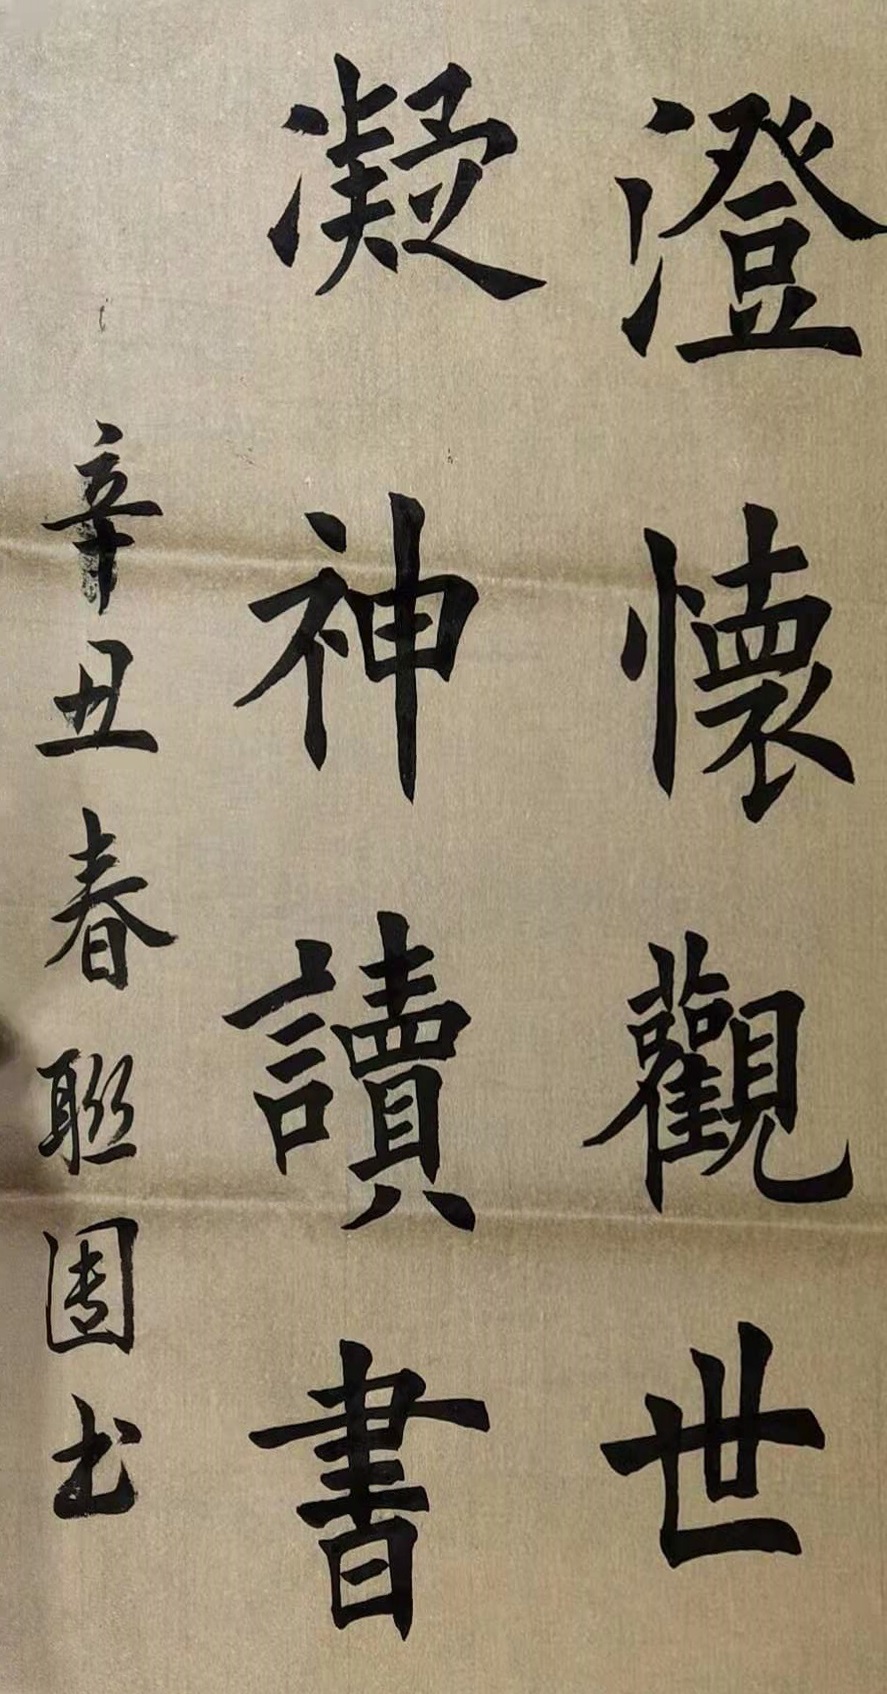 澄懷觀世
凝神讀書
辛丑春聯国书